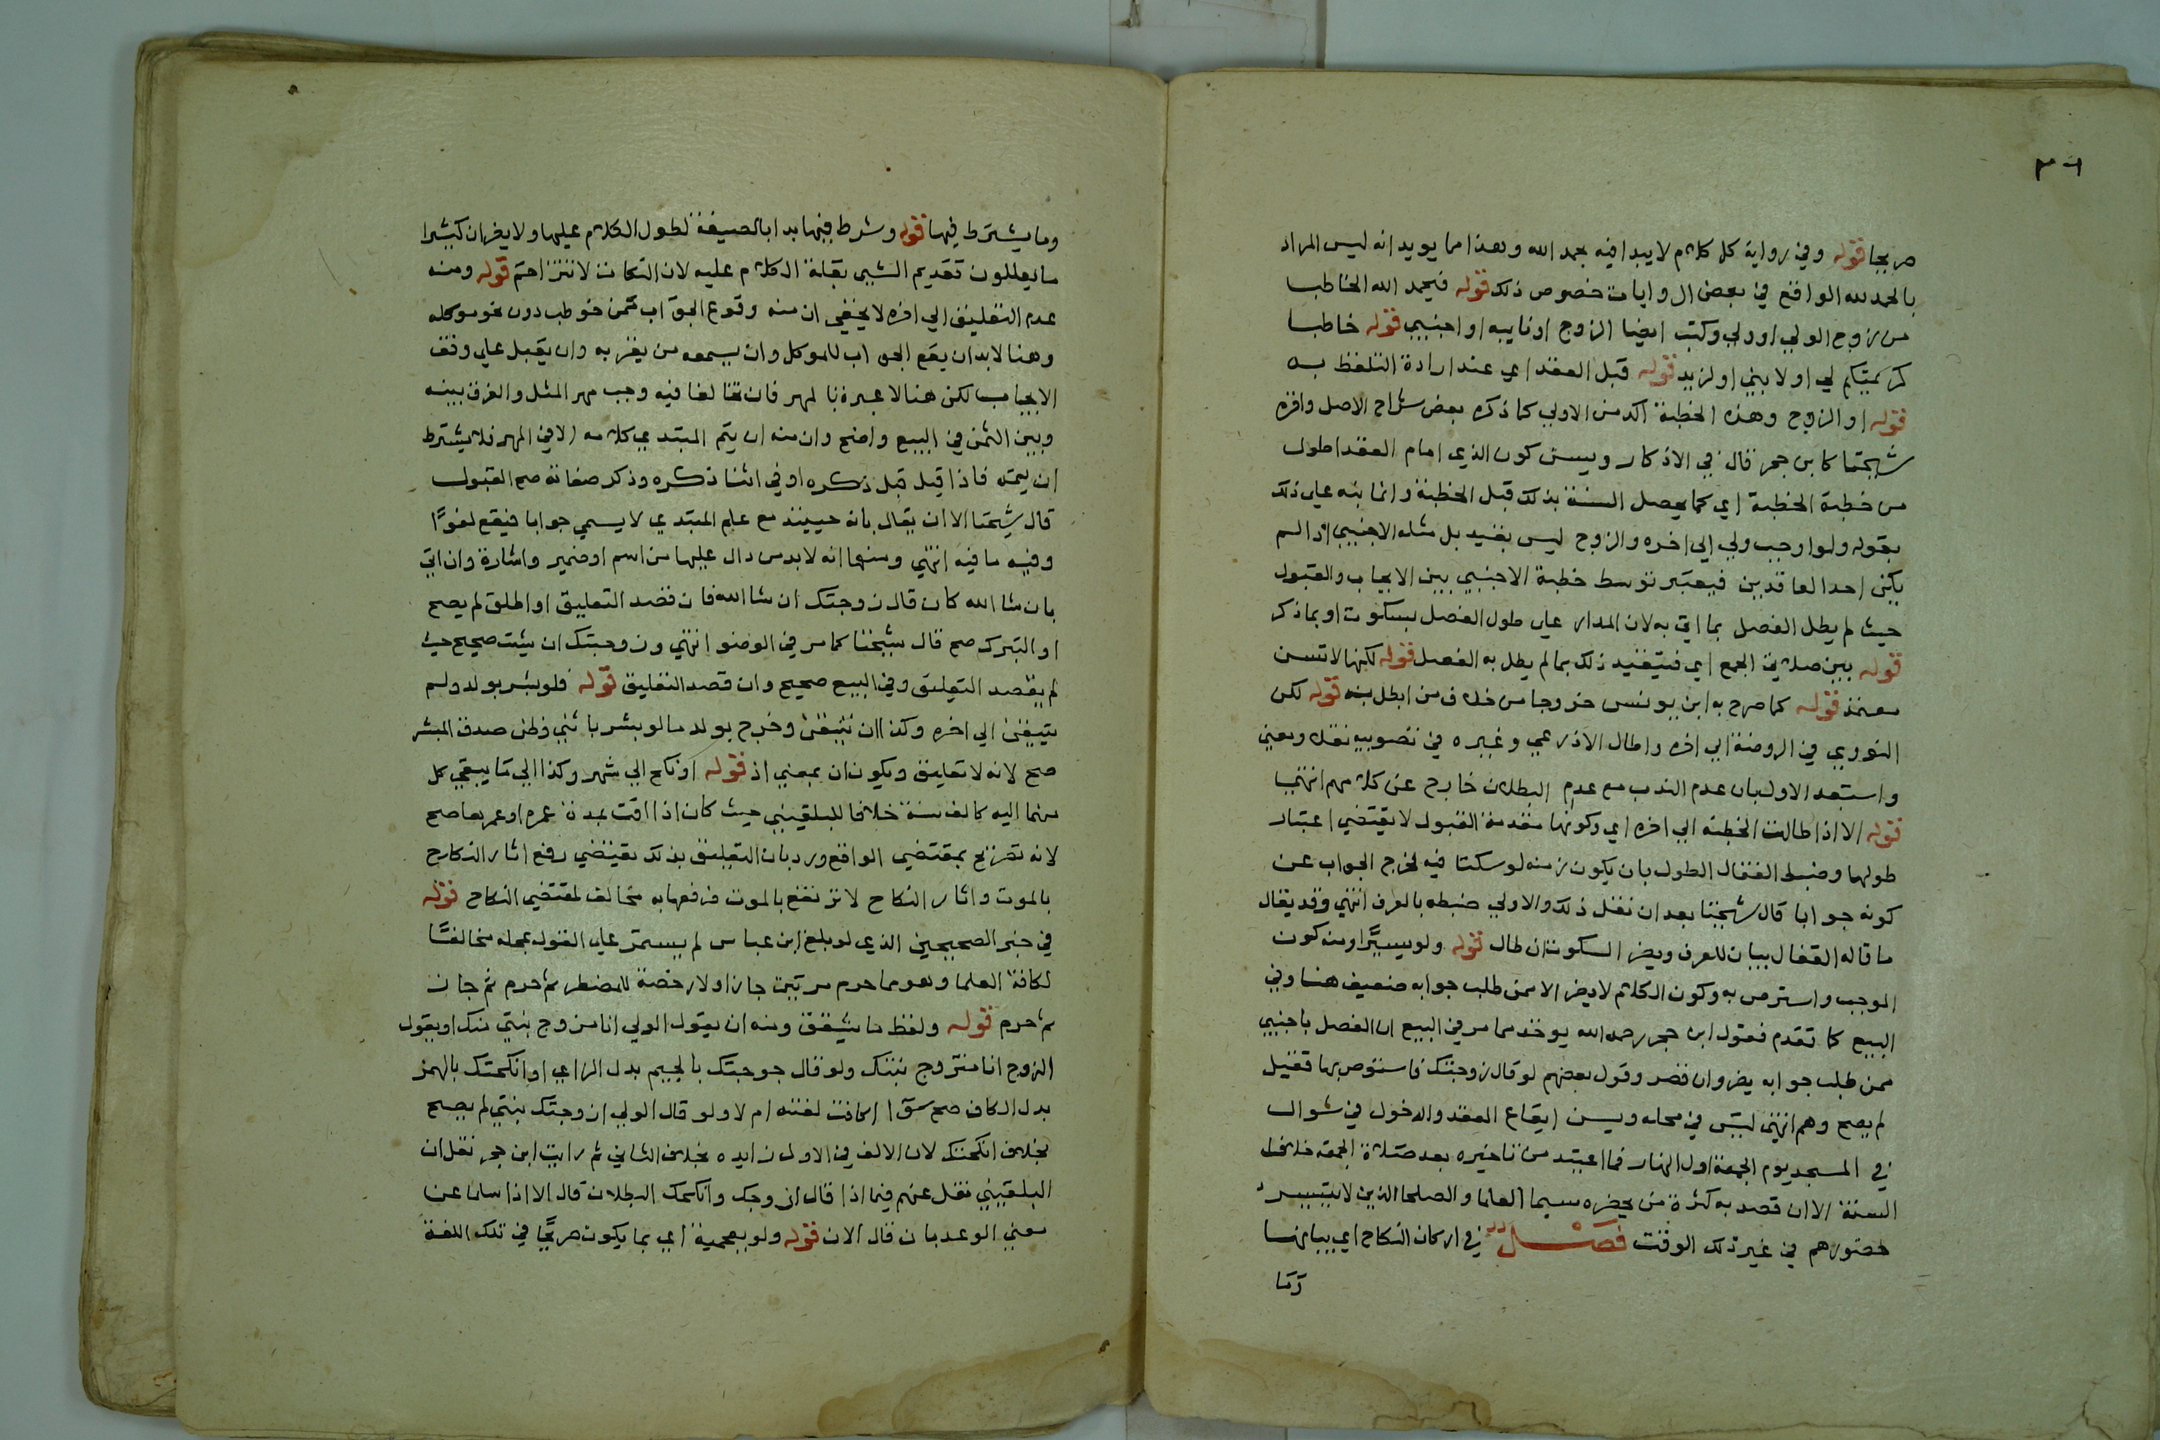 صريحا قوله وفي رواية كل كلام لا يبدا فيه بحمد الله وهذا مما يويد انه ليس المراد
بالحمد لله الواقع في بعض الروايات خصوص ذلك قوله فيحمد الله الخاطب
من زوج الولي او ولي وكتب ايضا الزوج او نايبه او اجنبي قوله خاطبا
كريمتكم لي او لابني او لزيد قوله قبل العقد اي عند ارادة التلفظ به
قوله او الزوج وهذه الخطبة اكد من الاولي كما ذكره بعض شراح الاصل واقره
شيخنا كابن حجر قال في الاذكار ويسن كون الذي امام العقد اطول
من خطبة الخطبة اي كما يحصل السنة بذلك قبل الخطبة وانما بنه علي ذلك
بقوله ولو اوجب ولي الي اخره والزوج ليس بقيد بل مثله الاجنبي اذ الم
يكن احد العاقدين فيعتبر توسط خطبة الاجنبي بين الايجاب والقبول
حيث لم يطل الفصل بما اتي به لان المدار علي طول الفصل بسكوت او بما ذكر
قوله بين صلاتي الجمع اي فيتقيد ذلك بما لم يطل به الفصل قوله لكنها لا تسن
معتمد قوله كما صرح به ابن يونس خروجا من خلاف من ابطل به قوله لكن
النووي في الروضة الي اخره واطال الاذرعي وغيره في تصويبه نقلا ومعني
واستبعد الاول بان عدم الندب مع عدم البطلان خارج عن كلامهم انتهي
قوله الا اذا طالت الخطبة الي اخره اي وكونها مقدمة القبول لا يقتضي اعتبار
طولها وضبط القفال الطول بان يكون زمنه لو سكتا فيه لخرج الجواب عن
كونه جوابا قال شيخنا بعد ان نقل ذلك والاولي ضبطه بالعرف انتهي وقد يقال
ما قاله القفال بيان للعرف ويضر السكوت ان طال قوله ولو يسيرًا ومنه كون
الموجب واسترص به وكون الكلام لا يضر الا ممن طلب جوابه ضعيف هنا وفي
البيع كما تقدم فقول ابن حجر رحمه الله يوخذ مما مر في البيع ان الفصل باجنبي
ممن طلب جوابه يضر وان قصر وقول بعضهم لو قال زوجتك فاستوص بها فقيل
لم يصح وهم انتهي ليس في محله ويسن ايقاع العقد والدخول في شوال
في المسجد يوم الجمعة اول النهار فما اعتيد من تاخيره بعد صلاة الجمعة خلاف
السنة الا ان قصد به كثرة من يحضره سيما العلما والصلحا الذين لا يتيسر
حضورهم في غير ذلك الوقت فصل في اركان النكاح اي بيانها
وما
وما يشترط فيها قوله وشرط فيها بدا بالصيغة لطول الكلام عليها ولا يضر ان كثيرا
ما يعللون تقديم الشيي بقلة الكلام عليه لان النكات لا تتزاحم قوله ومنه
عدم التعليق الي اخره لا يخفي ان منه وقوع الجواب ممن خوطب دون نحو موكله
وهنا لابد ان يقع الجواب للموكل وان يسمعه من يقربه وان يقبل علي وفق
الايجاب لكن هنا لا عبرة بالمهر فان تخالفا فيه وجب مهر المثل والفرق بينه
وبين الثمن في البيع واضح وان منه ان يتم المبتدي كلامه الا في المهر فلا يشترط
ان يتمه فاذا قبل قبل ذكره او في اثنا ذكره وذكر صفاته صح القبول
قال شيخنا الا ان يقال بانه حينيذ مع علم المبتدي لا يسمي جوابا فيقع لغوًا
وفيه ما فيه انتهي ومنها انه لا بد من دال عليها من اسم او ضمير واشارة وان اتي
بان شا الله كان قال زوجتك ان شا الله فان قصد التعليق او اطلق لم يصح
او التبرك صح قال شيخنا كما مر في الوضو انتهي وزوجتك ان شيت صحيح حيث
لم يقصد التعليق وفي البيع صحيح وان قصد التعليق قوله فلو بشر بولد ولم
يتيقن الي اخره وكذا ان تيقن وخرج بولد ما لو بشر بانثي وظن صدق المبشر
صح لانه لا تعليق ويكون ان بمعني اذ قوله او نكح الي شهر وكذا الي ما يبقي كل
منهما اليه كالف سنة خلافا للبلقيني حيث كان اذا اقت بمدة عمره او عمرها صح
لانه تصريح بمقتضي الواقع ورد بان التعليق بذلك يقتضي رفع اثار النكاح
بالموت واثار النكاح لا ترتفع بالموت فرفعها به مخالف لمقتضي النكاح قوله
في خبر الصحيحين الذي لو بلغ ابن عباس لم يستمر علي القول بحله مخالفًا
لكافة العلما وهو مما حرم مرتين جاز اولا رخصة للمضطر ثم حرم ثم جاز
ثم حرم قوله ولفظ ما يشتق ومنه ان يقول الولي انا مزوج بنتي منك او يقول
الزوج انا متزوج بنتك ولو قال جوجتك بالجيم بدل الزاي او انكحتك بالهمز
بدل الكاف صح سوا اكانت لغته ام لا ولو قال الولي ازوجتك بنتي لم يصح
بخلاف انكحتك لان الالف في الاول زايده بخلاف الثاني ثم رايت ابن حجر نقل ان
البلقيني نقل عنهم فيما اذا قال ازوجك وانكحك البطلان قال الا اذا سان عن
معني الوعد بان قال الان قوله ولو بعجمية اي بما يكون صريحًا في تلك اللغة